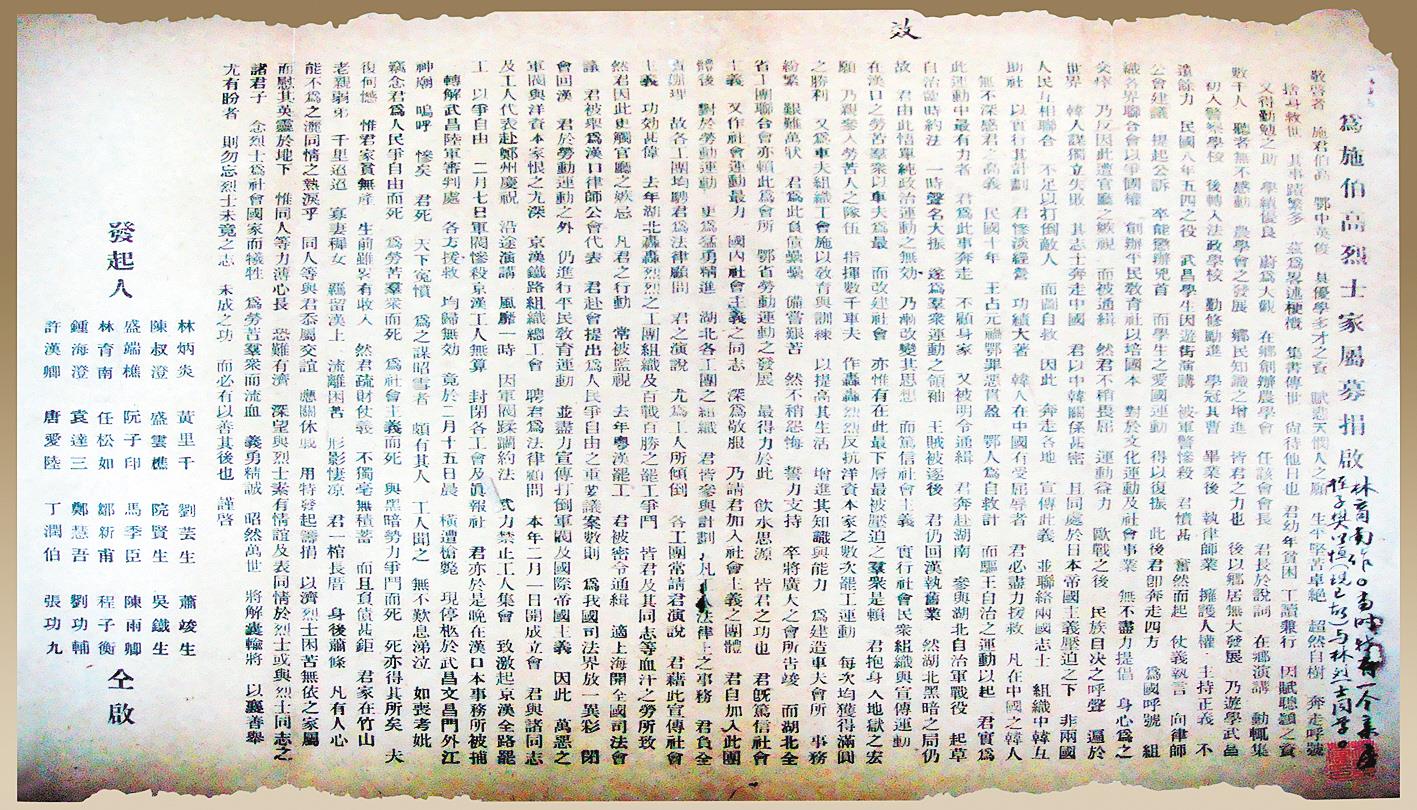 為施伯高烈士家屬募捐啟
林育南作
敬啓者 施君伯高 鄂中英俊 具優學多才之資 賦悲天憫人之願 生平堅苦卓絕 超然自樹 奔走呼號
捨身救世 其事蹟繁多 茲為畧述梗慨 集書傳世 尚待他日也 君幼年貧困 工讀兼行 因賦聰穎之資
又得勤勉之助 學績優良 蔚為大觀 在鄉創辦農學會 任該會會長 君長於說詞 在鄉演講 動輒集
數千人 聽者無不感動 農學會之發展 鄉民知識之增進 皆君之力也 後以鄉居無大發展 乃遊學武昌
初入警察學校 後轉入法政學校 勤修勤進 學冠其曹 畢業後 執律師業 擁護人權 主持正義 不
遺餘力 民國八年五四之役 武昌學生因遊街演講 被軍警慘殺 君憤甚 奮然而起 仗義執言 向律師
公會建議 提起公訴 卒能懲辦兇首 而學生之愛國運動 得以復振 此後君卽奔走四方 為國呼號 組
織各界聯合會以爭國權 創辦平民教育社以培國本 對於文化運動及社會事業 無不盡力提倡 身心為之
交瘁 乃反因此遭官廳之嫉視 而被通緝 然君不稍畏屈 運動益力 歐戰之後 民族自决之呼聲 遍於
世界 韓人謀獨立失敗 其志士奔走中國 君以中韓關係甚密 且同處於日本帝國主義壓迫之下 非兩國
人民互相聯合 不足以打倒敵人 而圖自救 因此 奔走各地 宣傳此義 並聯絡兩國志士 組織中韓互
助社 以實行其計劃 君慘淡經營 功績大著 韓人在中國有受屈辱者 君必盡力援救 凡在中國之韓人
無不深感君之高義 民國十年 王占元禍鄂罪惡貫盈 鄂人為自救計 而驅王自治之運動以起 君實為
此運動中最有力者 君為此事奔走 不顧身家 又被明令通緝 君奔赴湖南 參與湖北自治軍戰役 起草
自治臨時約法 一時聲名大振 遂為羣衆運動之領袖 王賊被逐後 君仍回漢執舊業 然湖北黑暗之局仍
故 君由此悟單純政治運動之無効 乃漸改變其思想 而篤信社會主義 實行社會民衆組織與宣傳運動
在漢口之勞苦羣衆以車夫為最 而改建社會 亦惟有在此最下層最被壓迫之羣衆是賴 君抱身入地獄之宏
願 乃親參入勞苦人之隊伍 指揮數千車夫 作轟轟烈烈反抗洋資本家之數次罷工運動 每次均獲得滿圓
之勝利 又為車夫組織工會施以教育與訓練 以提高其生活 增進其知識與能力 為建造車夫會所 事務
紛繁 艱難萬狀 君為此負債纍纍 備嘗艱苦 然不稍怨悔 誓力支持 卒將廣大之會所告竣 而湖北全
省工團聯合會亦賴此為會所 鄂省勞動運動之發展 最得力於此 飲水思源 皆君之功也 君旣篤信社會
主義 又作社會運動最力 國內社會主義之同志 深為敬服 乃請君加入社會主義之團體 君自加入此團
體後 對於勞動運動 更為猛勇精進 湖北各工團之組織 君皆參與計劃 凡工人法律上之事務 君負全
責辦理 故各工團均聘君為法律顧問 君之演說 尤為工人所傾倒 各工團常請君演說 君藉此宣傳社會
主義 功効甚偉 去年湖北轟轟烈烈之工團組織及百戰百勝之罷工爭鬥 皆君及其同志等血汁之勞所致
然君因此更觸官廳之嫉忌 凡君之行動 常被監視 去年粵漢罷工 君被密令通緝 適上海開全國司法會
議 君被舉為漢口律師公會代表 君赴會提出為人民爭自由之重要議案數則 為我國司法界放一異彩 閉
會回漢 君於勞動運動之外 仍進行平民敎育運動 並盡力宣傳打倒軍閥及國際帝國主義 因此 萬惡之
軍閥與洋資本家恨之尤深 京漢鐵路組織總工會 聘君為法律顧問 本年二月一日開成立會 君與諸同志
及工人代表赴鄭州慶祝 沿途演講 風靡一時 因軍閥蹂躪約法 武力禁止工人集會 致激起京漢全路罷
工 以爭自由 二月七日軍閥慘殺京漢工人無算 封閉各工會及眞報社 君亦於是晚在漢口本事務所被捕
轉解武昌陸軍審判處 各方援救 均歸無効 竟於二月十五日晨 橫遭槍斃 現停柩於武昌文昌門外江
神廟 嗚呼 慘矣 君死 天下寃憤 為之謀昭雪者 頗有其人 工人聞之 無不歎息涕泣 如喪考妣
竊念君為人民爭自由而死 為勞苦羣衆而死 為社會主義而死 與黑暗勢力爭鬥而死 死亦得其所矣 夫
復何憾 惟君家貧無產 生前雖畧有收入 然君疏財仗義 不獨毫無積蓄 而且負債甚鉅 君家在竹山
老親弱弟 千里迢迢 寡妻穉女 羈留漢上 流離困苦 形影悽凉 君一棺長厝 身後蕭條 凡有人心
能不為之灑同情之熱淚乎 同人等與君忝屬交誼 應關休戚 用特發起籌捐 以濟烈士困苦無依之家屬
而慰其英靈於地下 惟同人等力薄心長 恐難有濟 深望與烈士素有情誼及表同情於烈士或與烈士同志之
諸君子 念烈士為社會國家而犧牲 為勞苦羣衆而流血 義勇精誠 昭然萬世 將解囊輸將 以襄善舉
尤有盼者 則勿忘烈士未竟之志 未成之功 而必有以善其後也 謹啓
發起人
林炳炎 黃里千 劉芸生 蕭竣生
陳叔澄 盛雲樵 院賢生 吳鐵生
盛端樵 阮子印 馬季臣 陳雨卿
林育南 任松如 鄒新甫 程子衡
鍾海澄 袁達三 鄭慧吾 劉功輔
許漢卿 唐愛陸 丁潤伯 張功九
仝啟